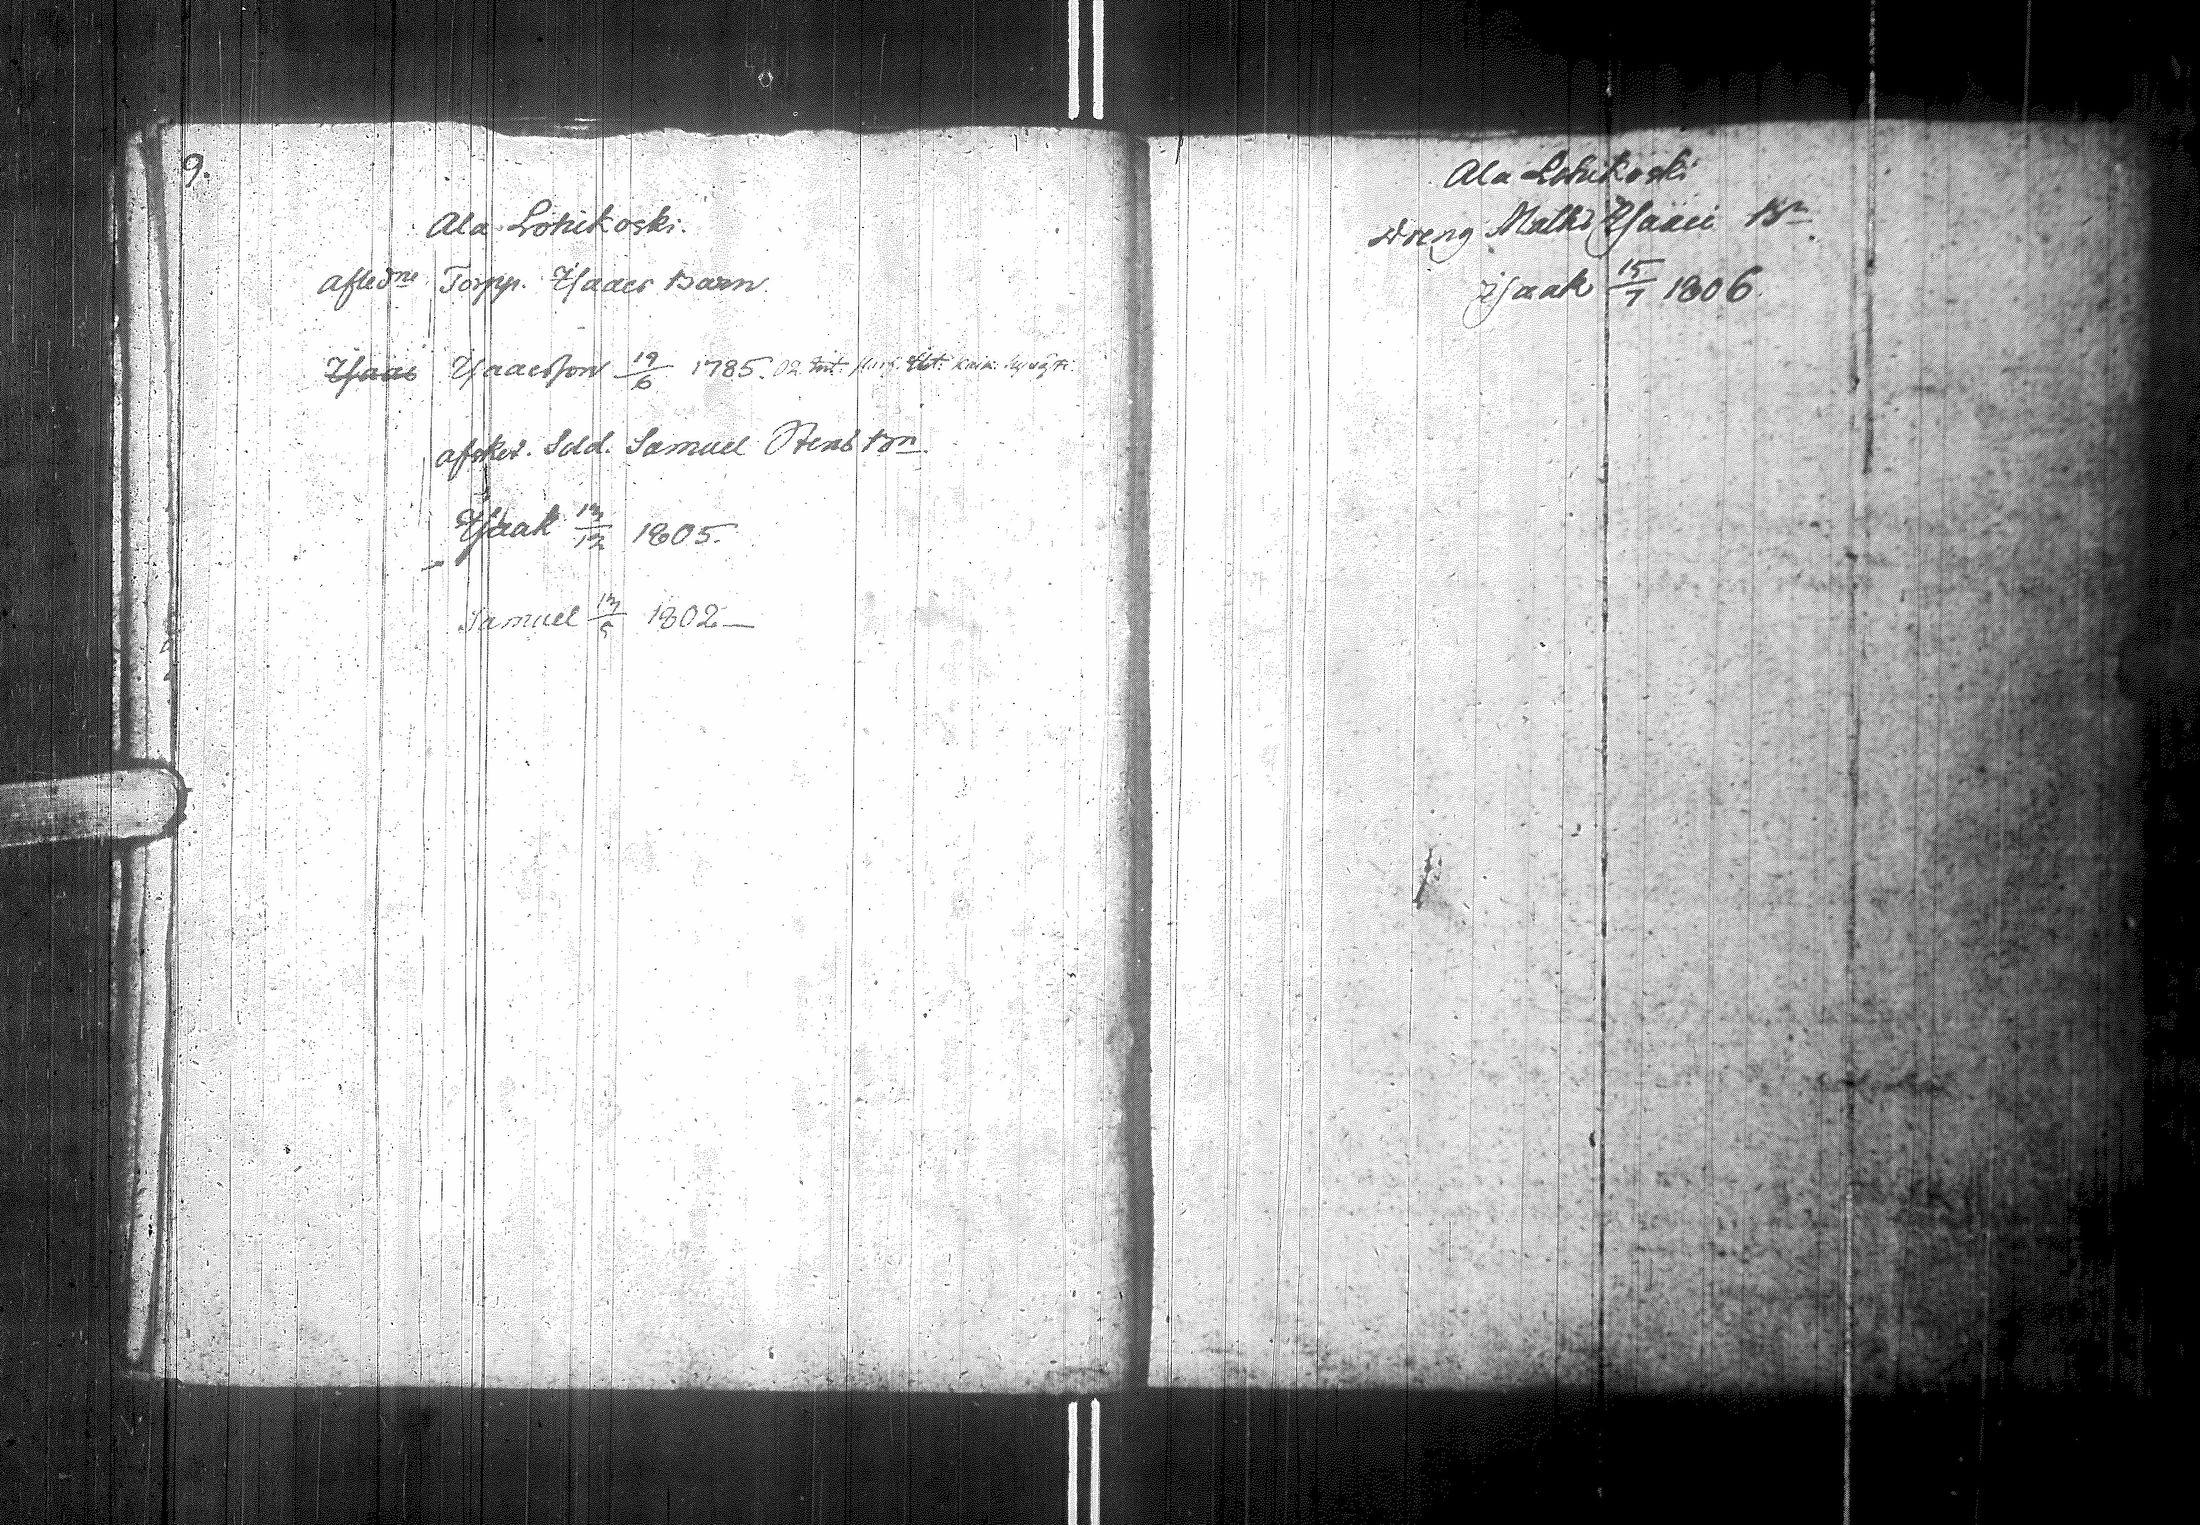 9.
Ala Lohikoski.
afled:ne Torpp. Isaacs Barn
Isaac Isaacsson 19/6 1785. 02
afsked. Sold. Samuel Stens Bn.
Isaak 13/12 1805.
Samuel 13/5 1802 —
Ala Lohikoski
dreng Matts Isaaci Bn.
Isaak 15/7 1806.